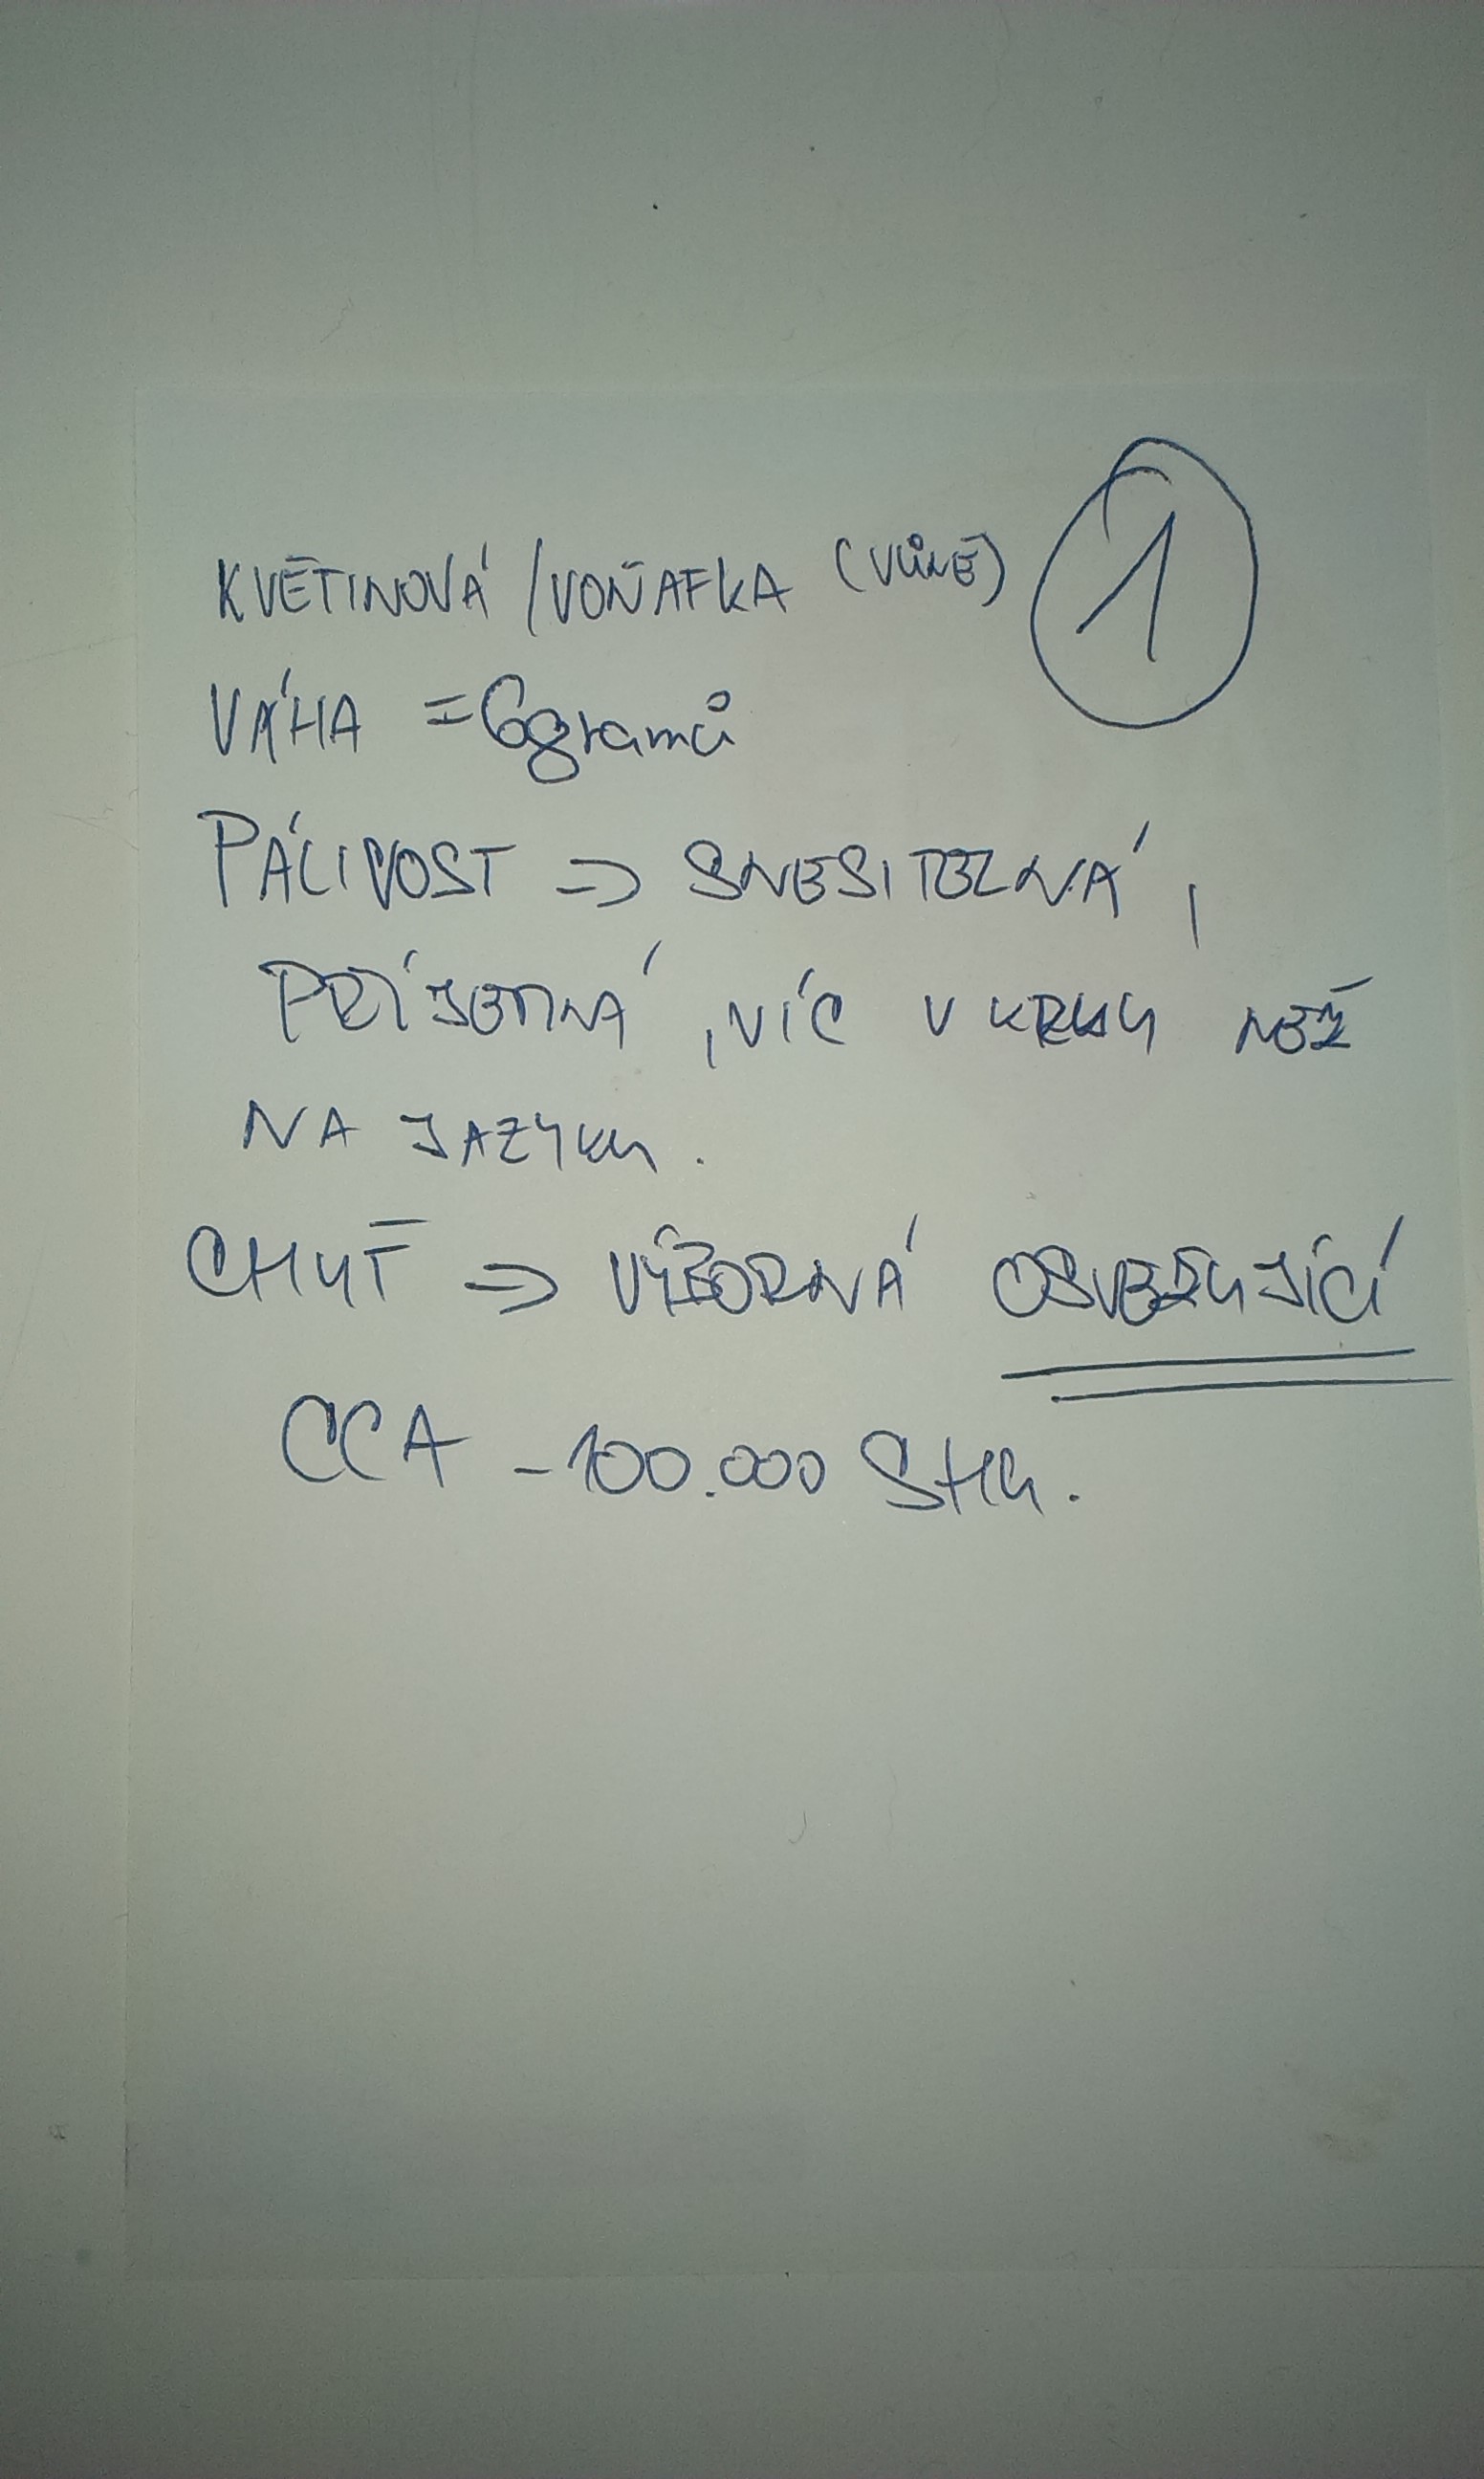 KVĚTINOVÁ /VOŇAFKA (VŮNĚ) 1
VÁHA = 6gramů
PÁLIVOST => SNESITELNÁ,
PŘÍJEMNÁ, VÍC V KRKU NEŽ
NA JAZYKU.
CHUŤ => VÝBORNÁ OSVEŽUJÍCÍ
CCA - 100.000 SHU.